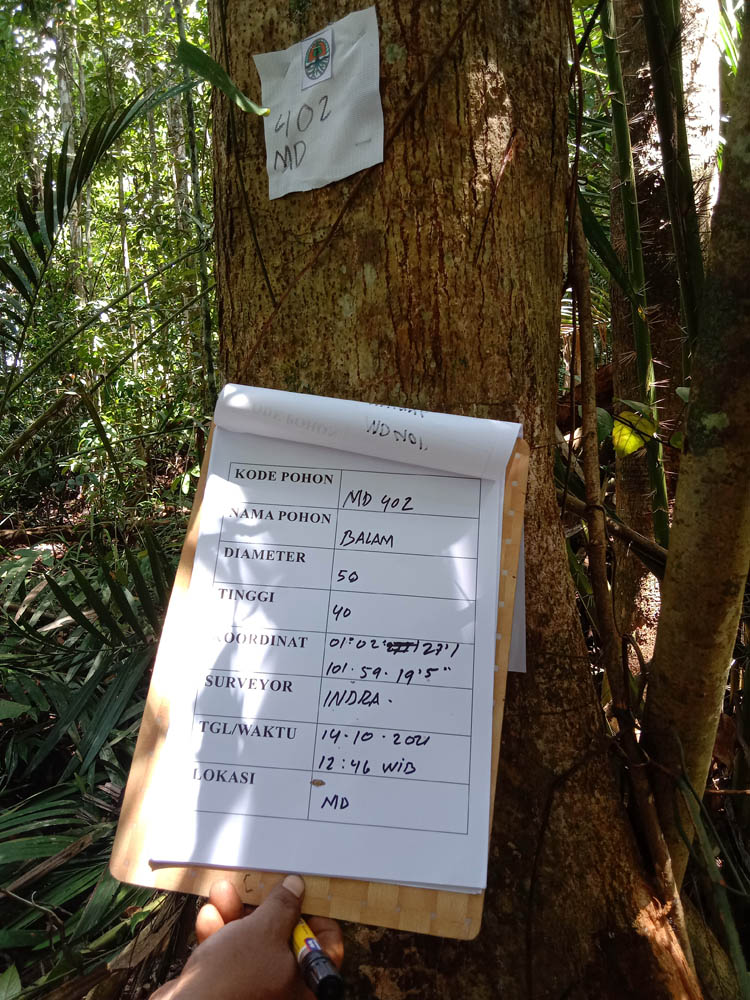 402
MD
KODE POHON
WDNOI
KODE POHON MD 402
NAMA POHON BALAM
DIAMETER 50
TINGGI 40
KOORDINAT 01°02'27'1
101.59.19'5"
SURVEYOR INDRA.
TGL/WAKTU 14.10.2021
12:46 WIB
LOKASI MD